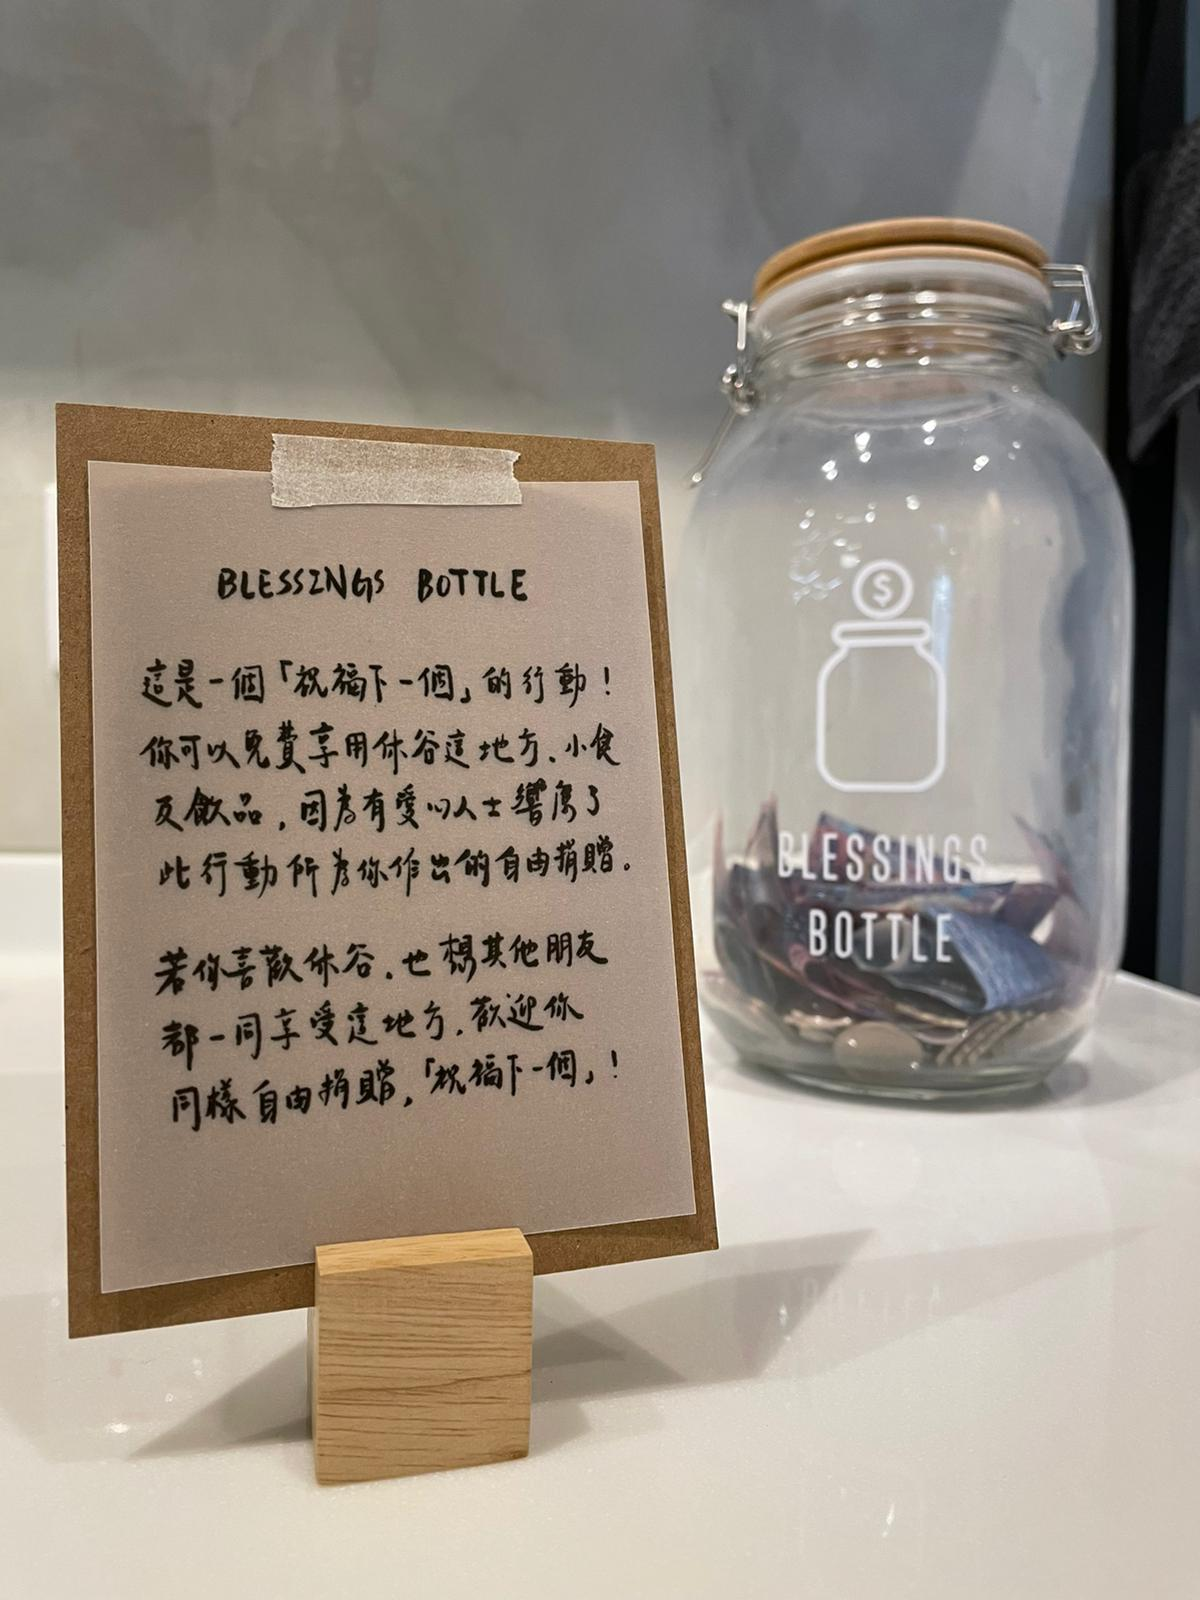 BLESSINGS BOTTLE
這是一個「祝福下一個」的行動！
你可以免費享用休谷這地方、小食
及飲品，因為有愛心人士響應了
此行動所為你作出的自由捐贈。
若你喜歡休谷，也想其他朋友
都一同享受這地方，歡迎你
同樣自由捐贈，「祝福下一個」！
$
BLESSINGS
BOTTLE